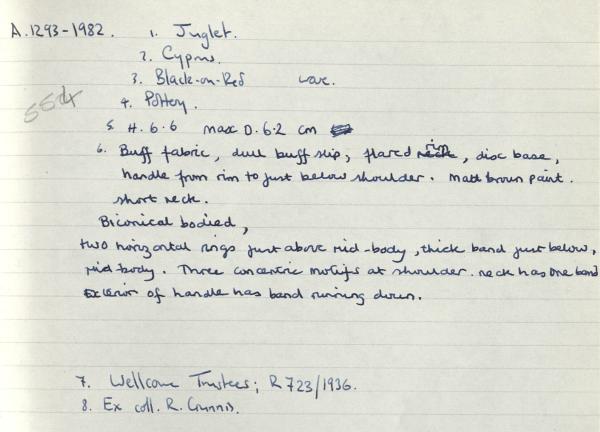 A.1293-1982. 1. Juglet.
2. Cyprus.
3. Black-on-Red ware.
554
4. Pottery.
5. H. 6.6 max D. 6.2 cm
6. Buff fabric, dull buff slip, flared rim, disc base,
handle from rim to just below shoulder. Matt brown paint.
short neck.
Biconical bodied,
two horizontal rings just above mid-body, thick band just below,
mid body. Three concentric motifs at shoulder. neck has one band
Exterior of handle has band running down.
7. Wellcome Trustees; R723/1936.
8. Ex coll. R. Gunnis.